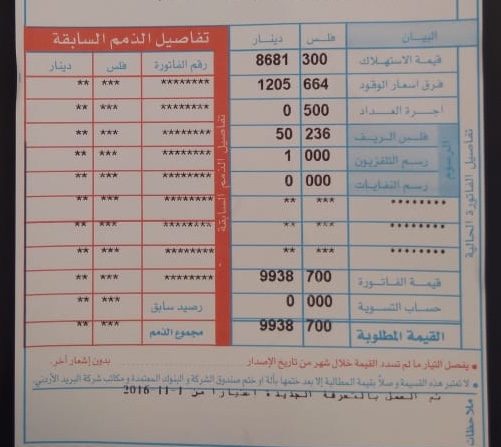 البيان فلس دينار
قيمة الاستهلاك 300 8681
فرق اسعار الوقود 664 1205
اجرة العداد 500 0
فلس الريف 236 50
رسم التلفزيون 000 1
رسم النفايات 000 0
******** *** **
******** *** **
******** *** **
قيمة الفاتورة 700 9938
حساب التسوية 000 0
القيمة المطلوبة 700 9938
الرسوم
تفاصيل الفاتورة الحالية
تفاصيل الذمم السابقة
رقم الفاتورة فلس دينار
******** *** **
******** *** **
******** *** **
******** *** **
******** *** **
******** *** **
******** *** **
******** *** **
******** *** **
رصيد سابق *** **
مجموع الذمم *** **
تفاصيل الذمم السابقة
• يفصل التيار ما لم تسدد القيمة خلال شهر من تاريخ الإصدار بدون إشعار آخر.
• لا تعتبر هذه القسيمة وصلاً بقيمة المطالبة إلا بعد ختمها بآلة او ختم صندوق الشركة و البنوك المعتمدة و مكاتب شركة البريد الأردني
تم العمل بالتعرفة الجديدة اعتبارا من 1-11-2016
ملاحظات